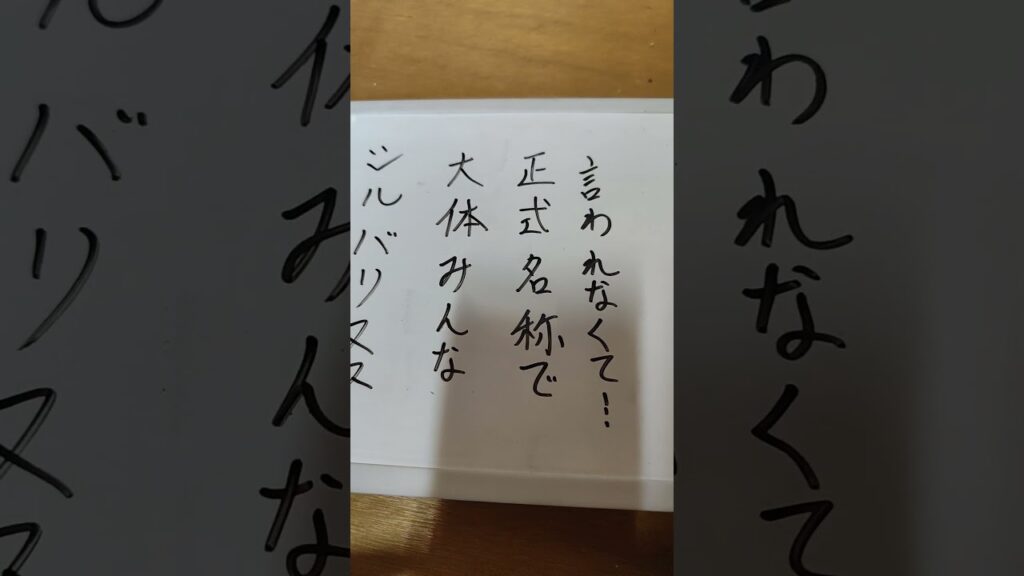 言われなくて!
正式名称で
大体みんな
シルバリヌス